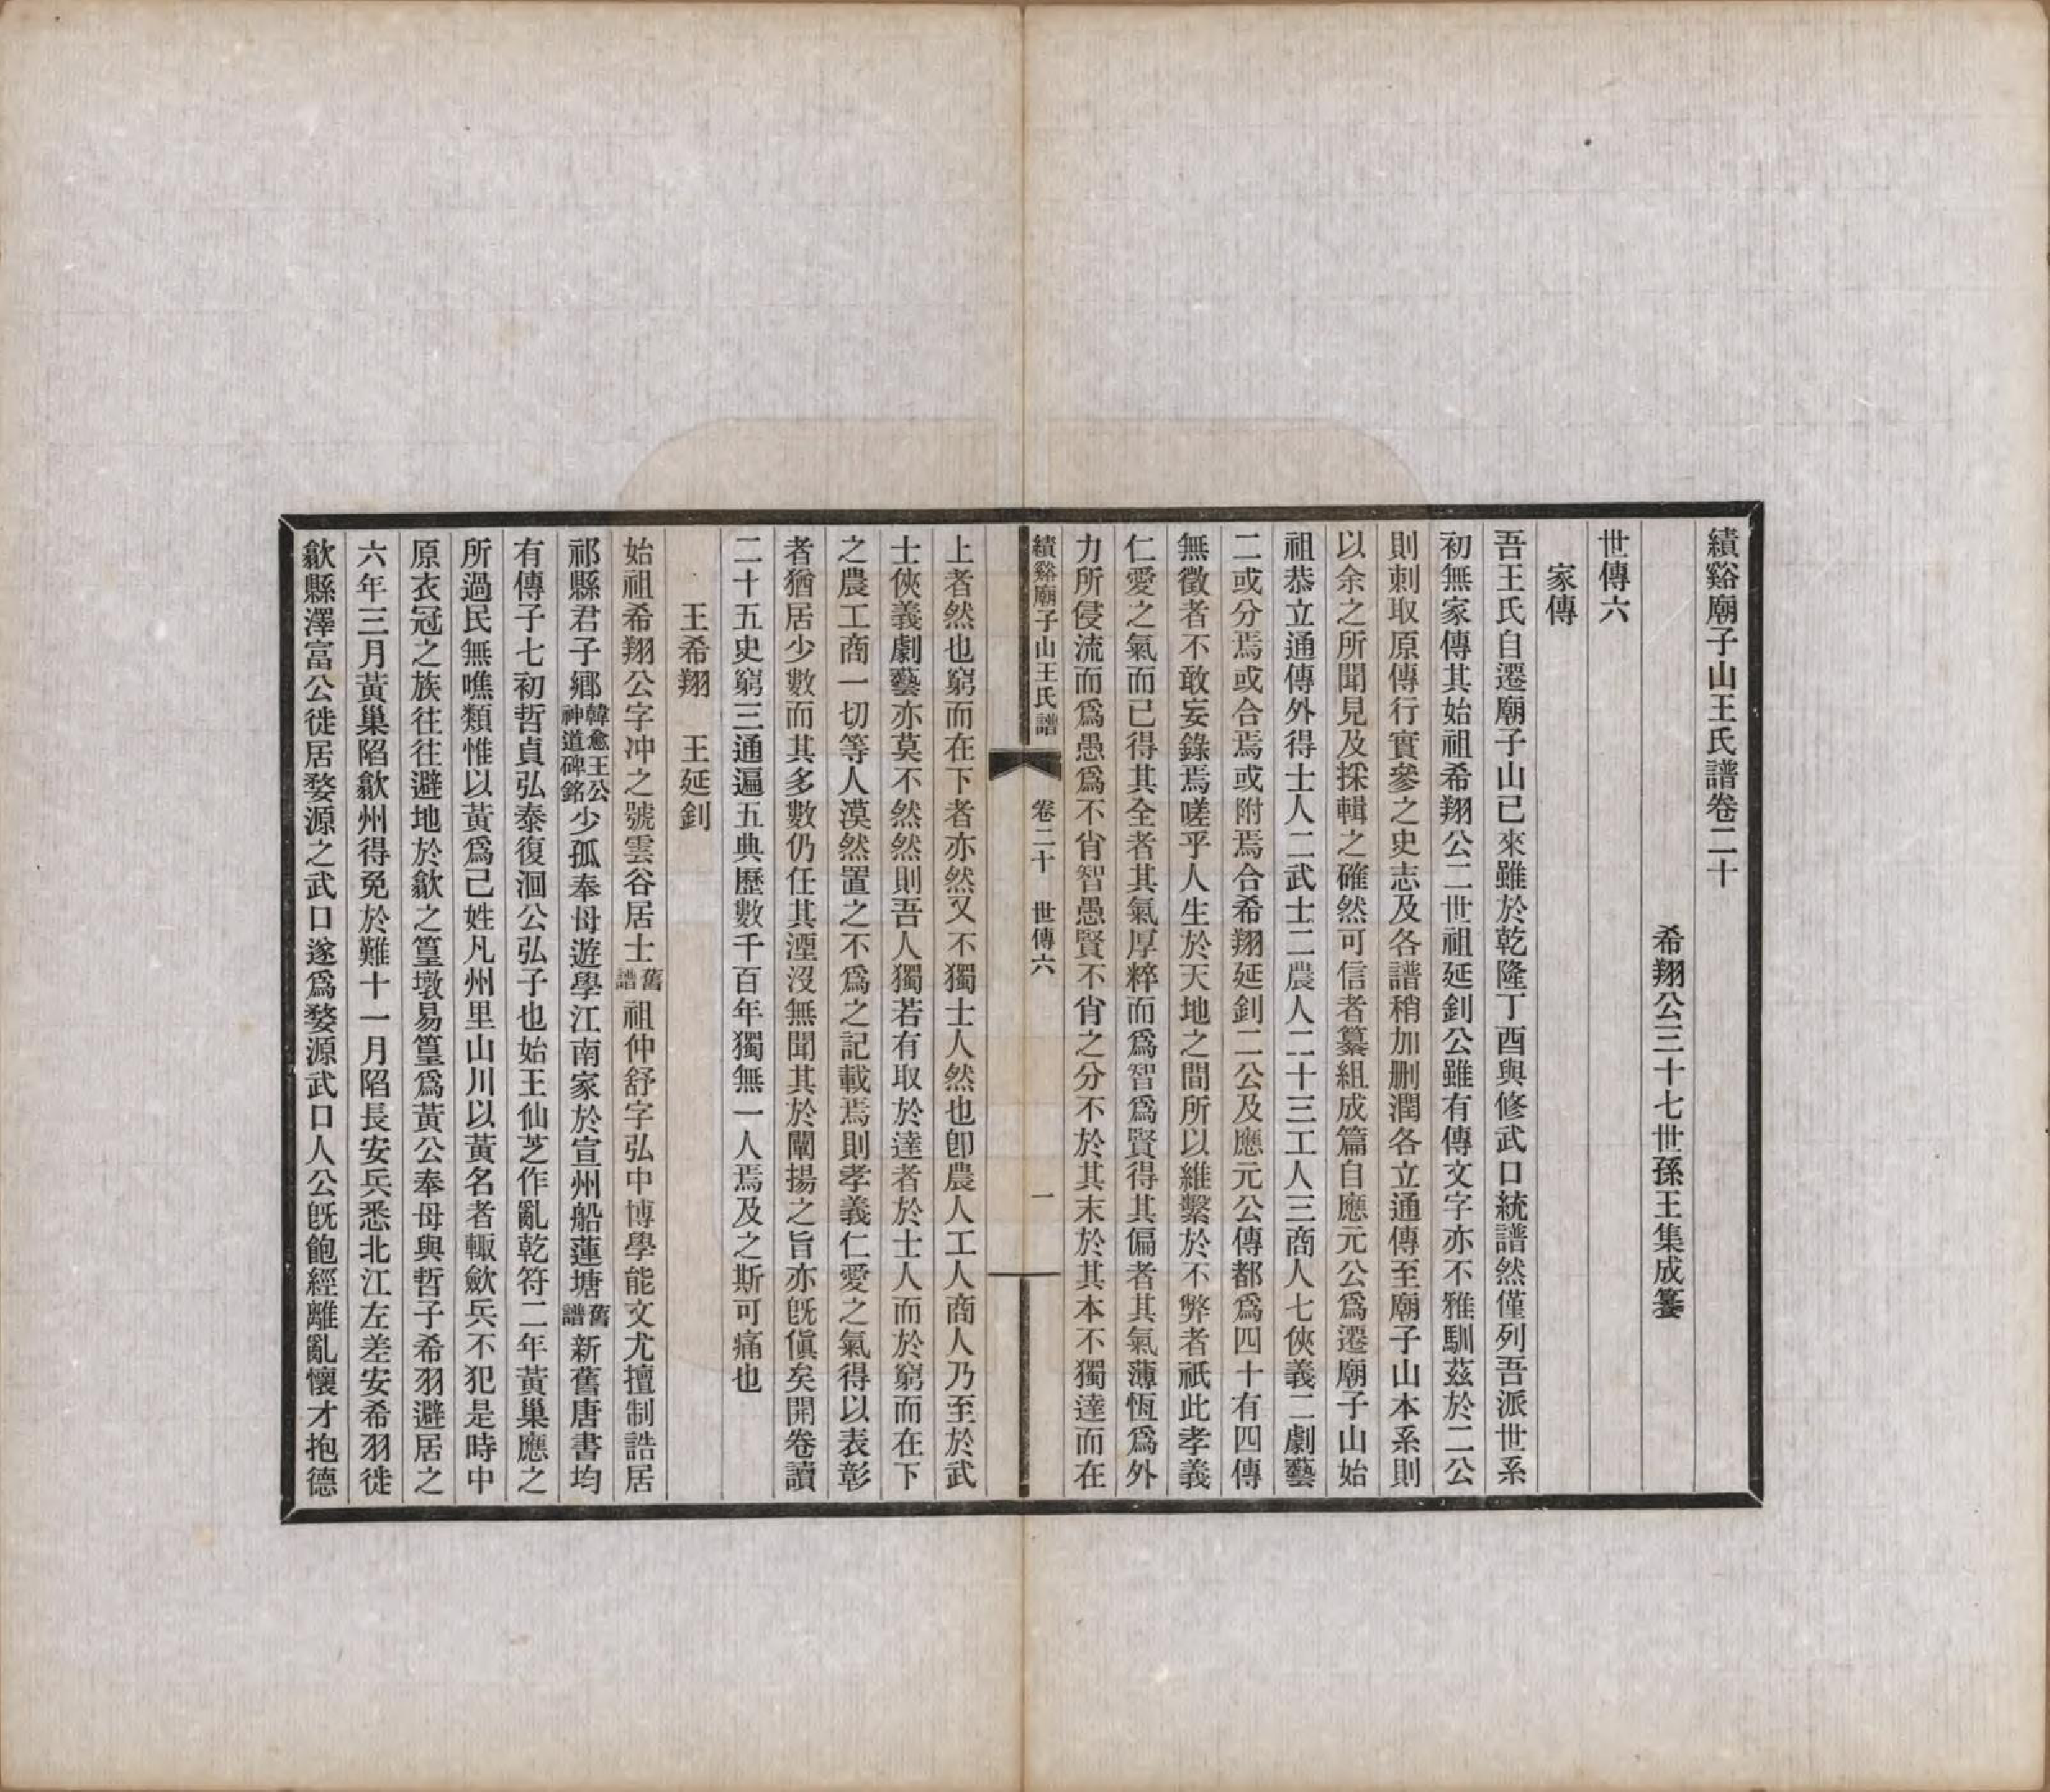 績谿廟子山王氏譜卷二十
希翔公三十七世孫王集成纂
世傳六
家傳
吾王氏自遷廟子山已來雖於乾隆丁酉與修武口統譜然僅列吾派世系
初無家傳其始祖希翔公二世祖延釗公雖有傳文字亦不雅馴茲於二公
則刺取原傳行實參之史志及各譜稍加删潤各立通傳至廟子山本系則
以余之所聞見及採輯之確然可信者纂組成篇自應元公爲遷廟子山始
祖恭立通傳外得士人二武士二農人二十三工人三商人七俠義二劇藝
二或分焉或合焉或附焉合希翔延釗二公及應元公傳都爲四十有四傳
無徵者不敢妄錄焉嗟乎人生於天地之間所以維繫於不弊者祇此孝義
仁愛之氣而已得其全者其氣厚粹而爲智爲賢得其偏者其氣薄恆爲外
力所侵流而爲愚爲不肖智愚賢不肖之分不於其末於其本不獨達而在
績谿廟子山王氏譜 卷二十 世傳六 一
上者然也窮而在下者亦然又不獨士人然也卽農人工人商人乃至於武
士俠義劇藝亦莫不然然則吾人獨若有取於達者於士人而於窮而在下
之農工商一切等人漠然置之不爲之記載焉則孝義仁愛之氣得以表彰
者猶居少數而其多數仍任其湮沒無聞其於闡揚之旨亦旣傎矣開卷讀
二十五史窮三通遍五典歷數千百年獨無一人焉及之斯可痛也
王希翔 王延釗
始祖希翔公字冲之號雲谷居士舊譜祖仲舒字弘中博學能文尤擅制誥居
祁縣君子鄕韓愈王公神道碑銘少孤奉母遊學江南家於宣州船蓮塘舊譜新舊唐書均
有傳子七初哲貞弘泰復洄公弘子也始王仙芝作亂乾符二年黃巢應之
所過民無噍類惟以黃爲己姓凡州里山川以黃名者輙歛兵不犯是時中
原衣冠之族往往避地於歙之篁墩易篁爲黃公奉母與哲子希羽避居之
六年三月黃巢陷歙州得免於難十一月陷長安兵悉北江左差安希羽徙
歙縣澤富公徙居婺源之武口遂爲婺源武口人公旣飽經離亂懷才抱德